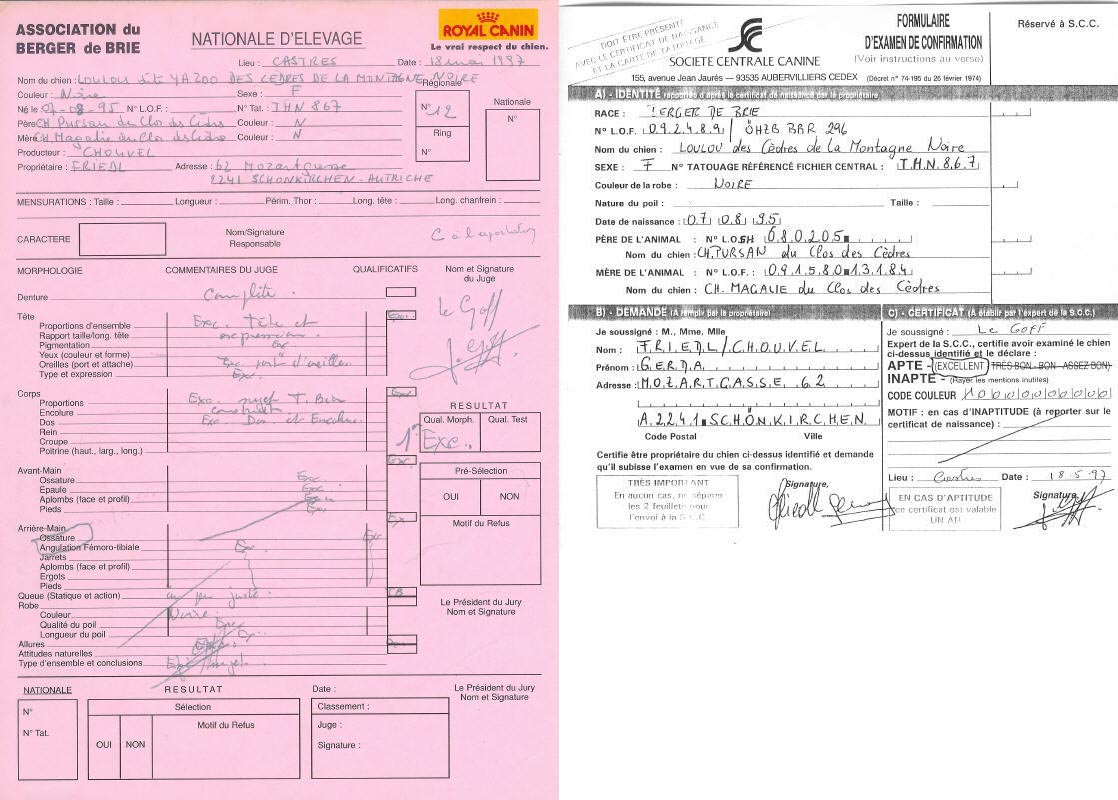 ASSOCIATION du
BERGER de BRIE
NATIONALE D'ELEVAGE
ROYAL CANIN
Le vrai respect du chien.
Lieu : CASTRES Date : 18 mai 1997
Nom du chien : LOULOU dite YAZOO DES CEDRES DE LA MONTAGNE NOIRE
Couleur : Noire Sexe : F
Né le 07-08-95 N° L.O.F. : N° Tat. : THN 867
Père CH Pursan du Clos des Cèdres Couleur : N
Mère CH Magalie du Clos des Cèdres Couleur : N
Producteur : CHOUVEL
Propriétaire : FRIEDL Adresse : 62 Mozartgasse
2241 SCHÖNKIRCHEN - AUTRICHE
Régionale
N° 12
Ring
N°
Nationale
N°
MENSURATIONS : Taille : Longueur : Périm. Thor : Long. tête : Long. chanfrein :
CARACTERE
Nom/Signature
Responsable
MORPHOLOGIE COMMENTAIRES DU JUGE QUALIFICATIFS
Nom et Signature
du Juge
Le Goff
Denture Complète
Tête
Proportions d'ensemble Exc. Tête et
Rapport taille/long. tête expression
Pigmentation Exc
Yeux (couleur et forme)
Oreilles (port et attache) Exc port d'oreilles
Type et expression Exc.
Corps
Proportions Exc. sujet T. Bien
Encolure construit
Dos Exc. Dos et Encolure
Rein
Croupe
Poitrine (haut., larg., long.)
RESULTAT
Qual. Morph. Qual. Test
1° Exc.
Avant-Main
Ossature Exc
Epaule Exc
Aplombs (face et profil) Exc
Pieds Exc
Pré-Sélection
OUI NON
Motif du Refus
Arrière-Main
Ossature Exc
Angulation Fémoro-tibiale Exc
Jarrets
Aplombs (face et profil)
Ergots
Pieds
Queue (Statique et action) un peu juste. TB
Robe
Couleur Noire.
Qualité du poil Exc
Longueur du poil Exc
Allures
Attitudes naturelles
Type d'ensemble et conclusions Exc sujet.
Le Président du Jury
Nom et Signature
NATIONALE
N°
N° Tat.
RESULTAT
Sélection
OUI NON
Motif du Refus
Date :
Classement :
Juge :
Signature :
Le Président du Jury
Nom et Signature
DOIT ÊTRE PRÉSENTÉ
AVEC LE CERTIFICAT DE NAISSANCE
ET LA CARTE DE TATOUAGE
SCC
SOCIÉTÉ CENTRALE CANINE
155, avenue Jean Jaurès — 93535 AUBERVILLIERS CEDEX
FORMULAIRE
D'EXAMEN DE CONFIRMATION
(Voir instructions au verso)
(Décret n° 74-195 du 26 février 1974)
Réservé à S.C.C.
A) - IDENTITÉ reportée d'après le certificat de naissance par le propriétaire
RACE : BERGER DE BRIE
N° L.O.F. 092489 / ÖHZB BBR 296
Nom du chien : LOULOU des Cèdres de la Montagne Noire
SEXE : F N° TATOUAGE RÉFÉRENCÉ FICHIER CENTRAL : T.H.N. 8.6.7
Couleur de la robe : NOIRE
Nature du poil : Taille :
Date de naissance : 07 08 95
PÈRE DE L'ANIMAL : N° L.OSH 080205
Nom du chien : CH. PURSAN du Clos des Cèdres
MÈRE DE L'ANIMAL : N° L.O.F. : 091580 13184
Nom du chien : CH. MAGALIE du Clos des Cèdres
B) - DEMANDE (A remplir par le propriétaire)
Je soussigné : M., Mme, Mlle
Nom : FRIEDL/CHOUVEL
Prénom : GERDA
Adresse : MOZARTGASSE 62
A.2241 SCHÖNKIRCHEN
Code Postal Ville
Certifie être propriétaire du chien ci-dessus identifié et demande
qu'il subisse l'examen en vue de sa confirmation.
TRÈS IMPORTANT
En aucun cas, ne séparer
les 2 feuillets pour
l'envoi à la S.C.C.
Signature,
C) - CERTIFICAT (A établir par l'expert de la S.C.C.)
Je soussigné : LE GOFF
Expert de la S.C.C., certifie avoir examiné le chien
ci-dessus identifié et le déclare :
APTE - (EXCELLENT) TRÈS BON - BON - ASSEZ BON)
INAPTE - (Rayer les mentions inutiles)
CODE COULEUR
MOTIF : en cas d'INAPTITUDE (à reporter sur le
certificat de naissance) :
Lieu : Castres Date : 18-5-97
EN CAS D'APTITUDE
ce certificat est valable
UN AN
Signature,